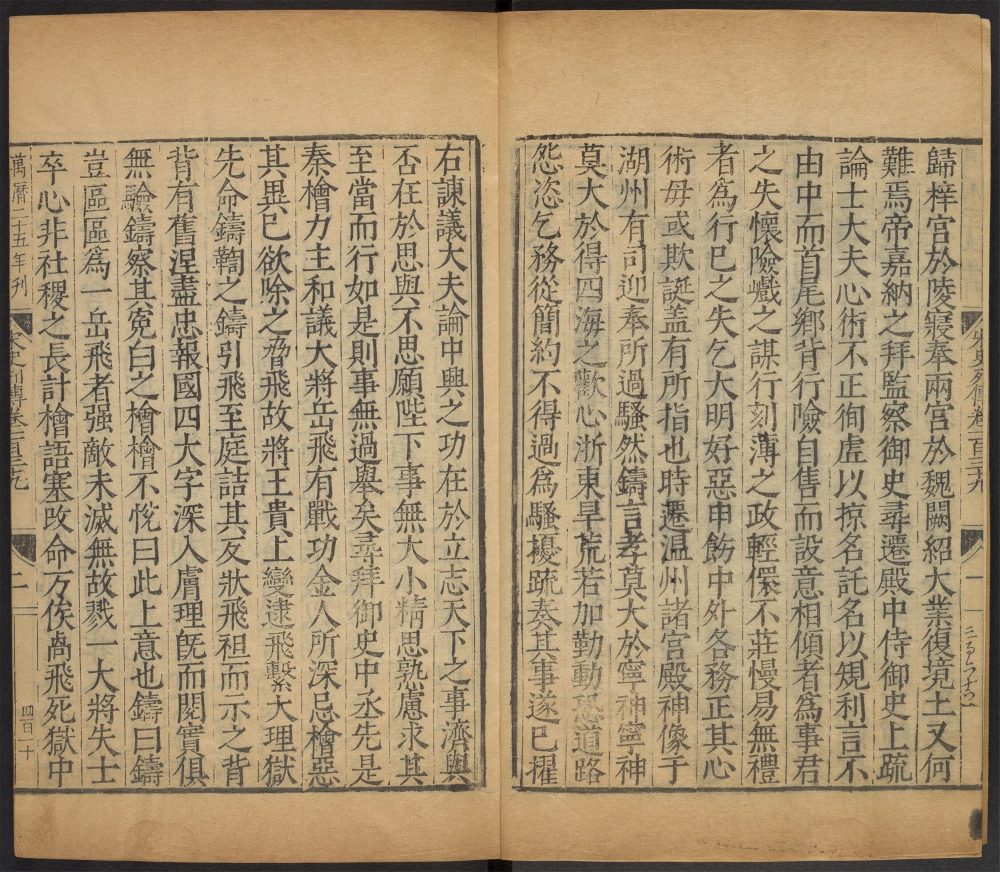 歸梓宮於陵寢奉兩宮於魏闕紹大業復境土又何
難焉帝嘉納之拜監察御史尋遷殿中侍御史上疏
論士大夫心術不正徇虛以掠名託名以規利言不
由中而首尾鄉背行險自售而設意相傾者爲事君
之失懷險巇之謀行刻薄之政輕儇不莊慢易無禮
者爲行已之失乞大明好惡申飭中外各務正其心
術毋或欺誕蓋有所指也時遷温州諸宮殿神像于
湖州有司迎奉所過騷然鑄言孝莫大於寧神寧神
莫大於得四海之歡心浙東旱荒若加勤動恐道路
怨恣乞務從簡約不得過爲騷擾疏奏其事遂已擢
右諫議大夫論中興之功在於立志天下之事濟與
否在於思與不思願陛下事無大小精思熟慮求其
至當而行如是則事無過舉矣尋拜御史中丞先是
秦檜力主和議大將岳飛有戰功金人所深忌檜惡
其異已欲除之脅飛故將王貴上變逮飛繫大理獄
先命鑄鞫之鑄引飛至庭詰其反狀飛袒而示之背
背有舊涅盡忠報國四大字深入膚理旣而閱實俱
無驗鑄察其寃白之檜檜不悅曰此上意也鑄曰鑄
豈區區爲一岳飛者强敵未滅無故戮一大將失士
卒心非社稷之長計檜語塞改命万俟卨飛死獄中
萬曆二十五年刊
宋史列傳卷一百三十九
一
宋史列傳卷一百三十九
二
四百二十